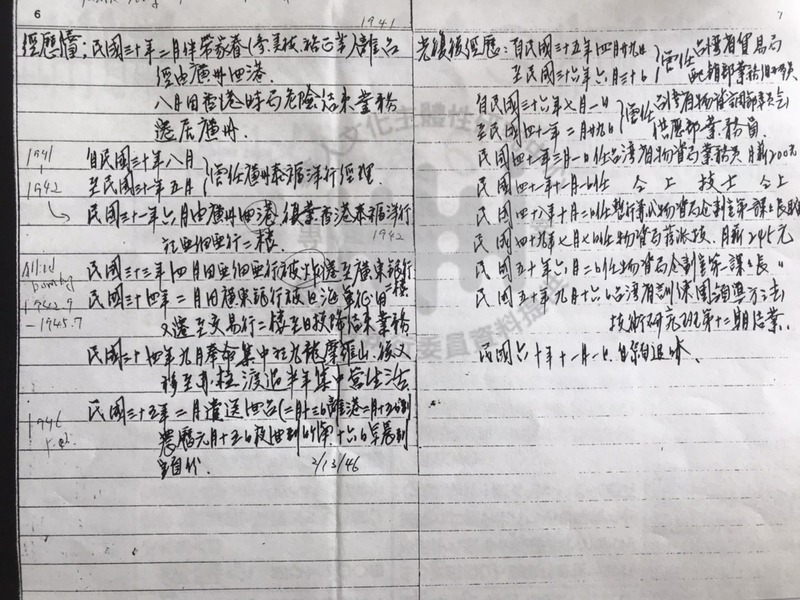 6
1941
經歷懂：民國三十年二月伴帶家眷(秀美枝、裕正等)離台
經由廣州回港.
八月因香港時局危險結束業務
還居廣州.
1941
1942
自民國三十年八月
至民國三十一年五月
曾任廣州泰福洋行經理.
民國三十一年六月由廣州回港復業香港泰福洋行
1942
於亞細亞行二樓.
Allied
bombing
1942.9
-1945.7
民國三十三年四月因亞細亞行被炸遷至廣東銀行
二樓
民國三十四年二月因廣東銀行被日海軍征用
又遷至交易行二樓至日投降結束業務
民國三十四年九月奉命集中在九龍摩羅山. 後又
移至赤柱渡過半年集中營生活.
1946
Feb.
民國三十五年二月遣送回台(二月十三日離港二月十五日到
農曆元月十五日夜回到 十六日早晨到
2/13/46
7
光復後經歷：自民國三十五年四月廿九日
至民國三十六年六月三十日
曾任台灣省貿易局
配銷部業務組職員
自民國三十六年七月一日
至民國四十一年二月廿九日
曾任台灣省物資調節委員會
供應部業務員.
民國四十一年三月一日任台灣省物資局業務員 月薪200元
民國四十二年十一月一日任 仝上 技士 仝上
民國四十八年十月二日任暫行兼代物資局企劃室第一課課長職
民國四十九年七月七日任物資局薦派技. 月薪245元
民國五十年六月二日任物資局企劃室第二課課長 〃
民國五十年九月十六日台灣省訓練團領導方法
技術研究班第十二期結業.
民國六十年十一月一日. 自願退休.